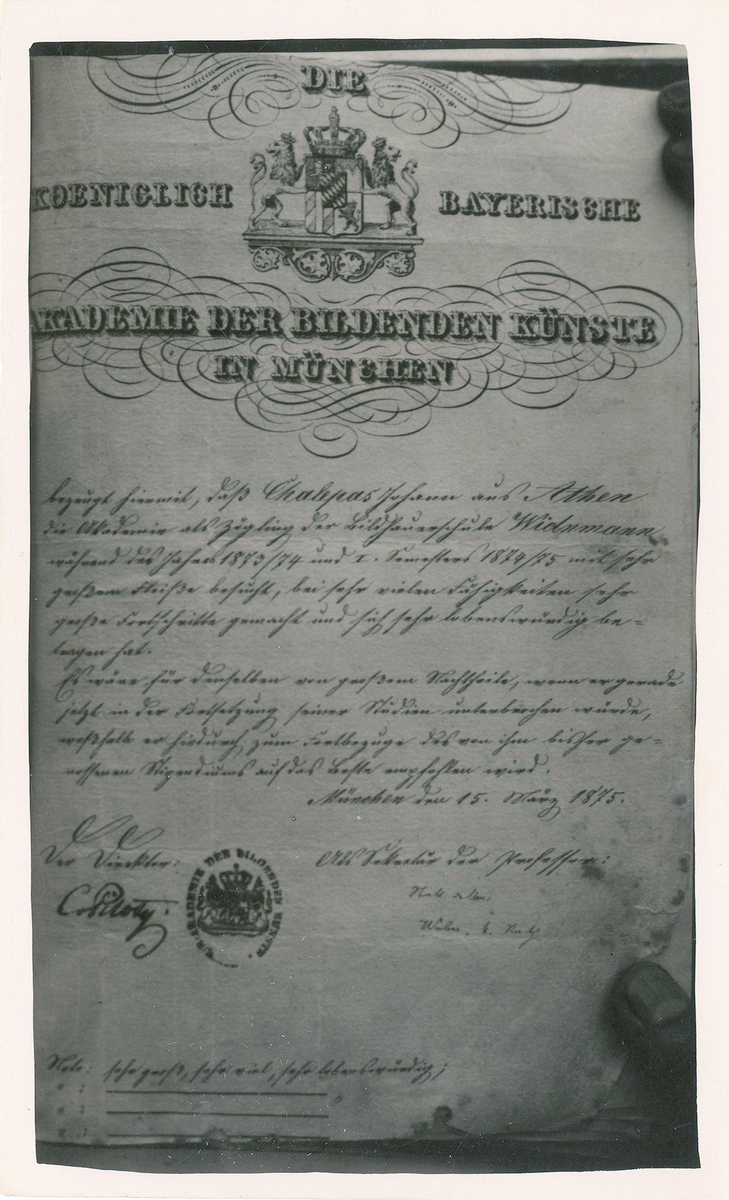 DIE
KOENIGLICH BAYERISCHE
AKADEMIE DER BILDENDEN KÜNSTE
IN MÜNCHEN
bezeugt hiermit, daß Chalepas Johann aus Athen
die Akademie als Zögling der Bildhauerschule Widnmann
während des Jahres 1873/74 und I. Semesters 1874/75 mit sehr
großem Fleiße besucht, bei sehr vielen Fähigkeiten sehr
große Fortschritte gemacht und sich sehr lobenswürdig be=
tragen hat.
Es wäre für denselben von großem Nachtheile, wenn er gerade
jetzt in der Fortsetzung seiner Studien unterbrochen würde,
weßhalb er hiedurch zum Fortbezuge des von ihm bisher ge=
nossenen Stipendiums auf das Beste empfohlen wird.
München den 15. März 1875.
Der Direktor: Als Sekretär der Professor:
C. v. Piloty.
K. B. AKADEMIE DER BILDENDEN KÜNSTE
Note: sehr groß, sehr viel, sehr lobenswürdig;
" :
" :
" :